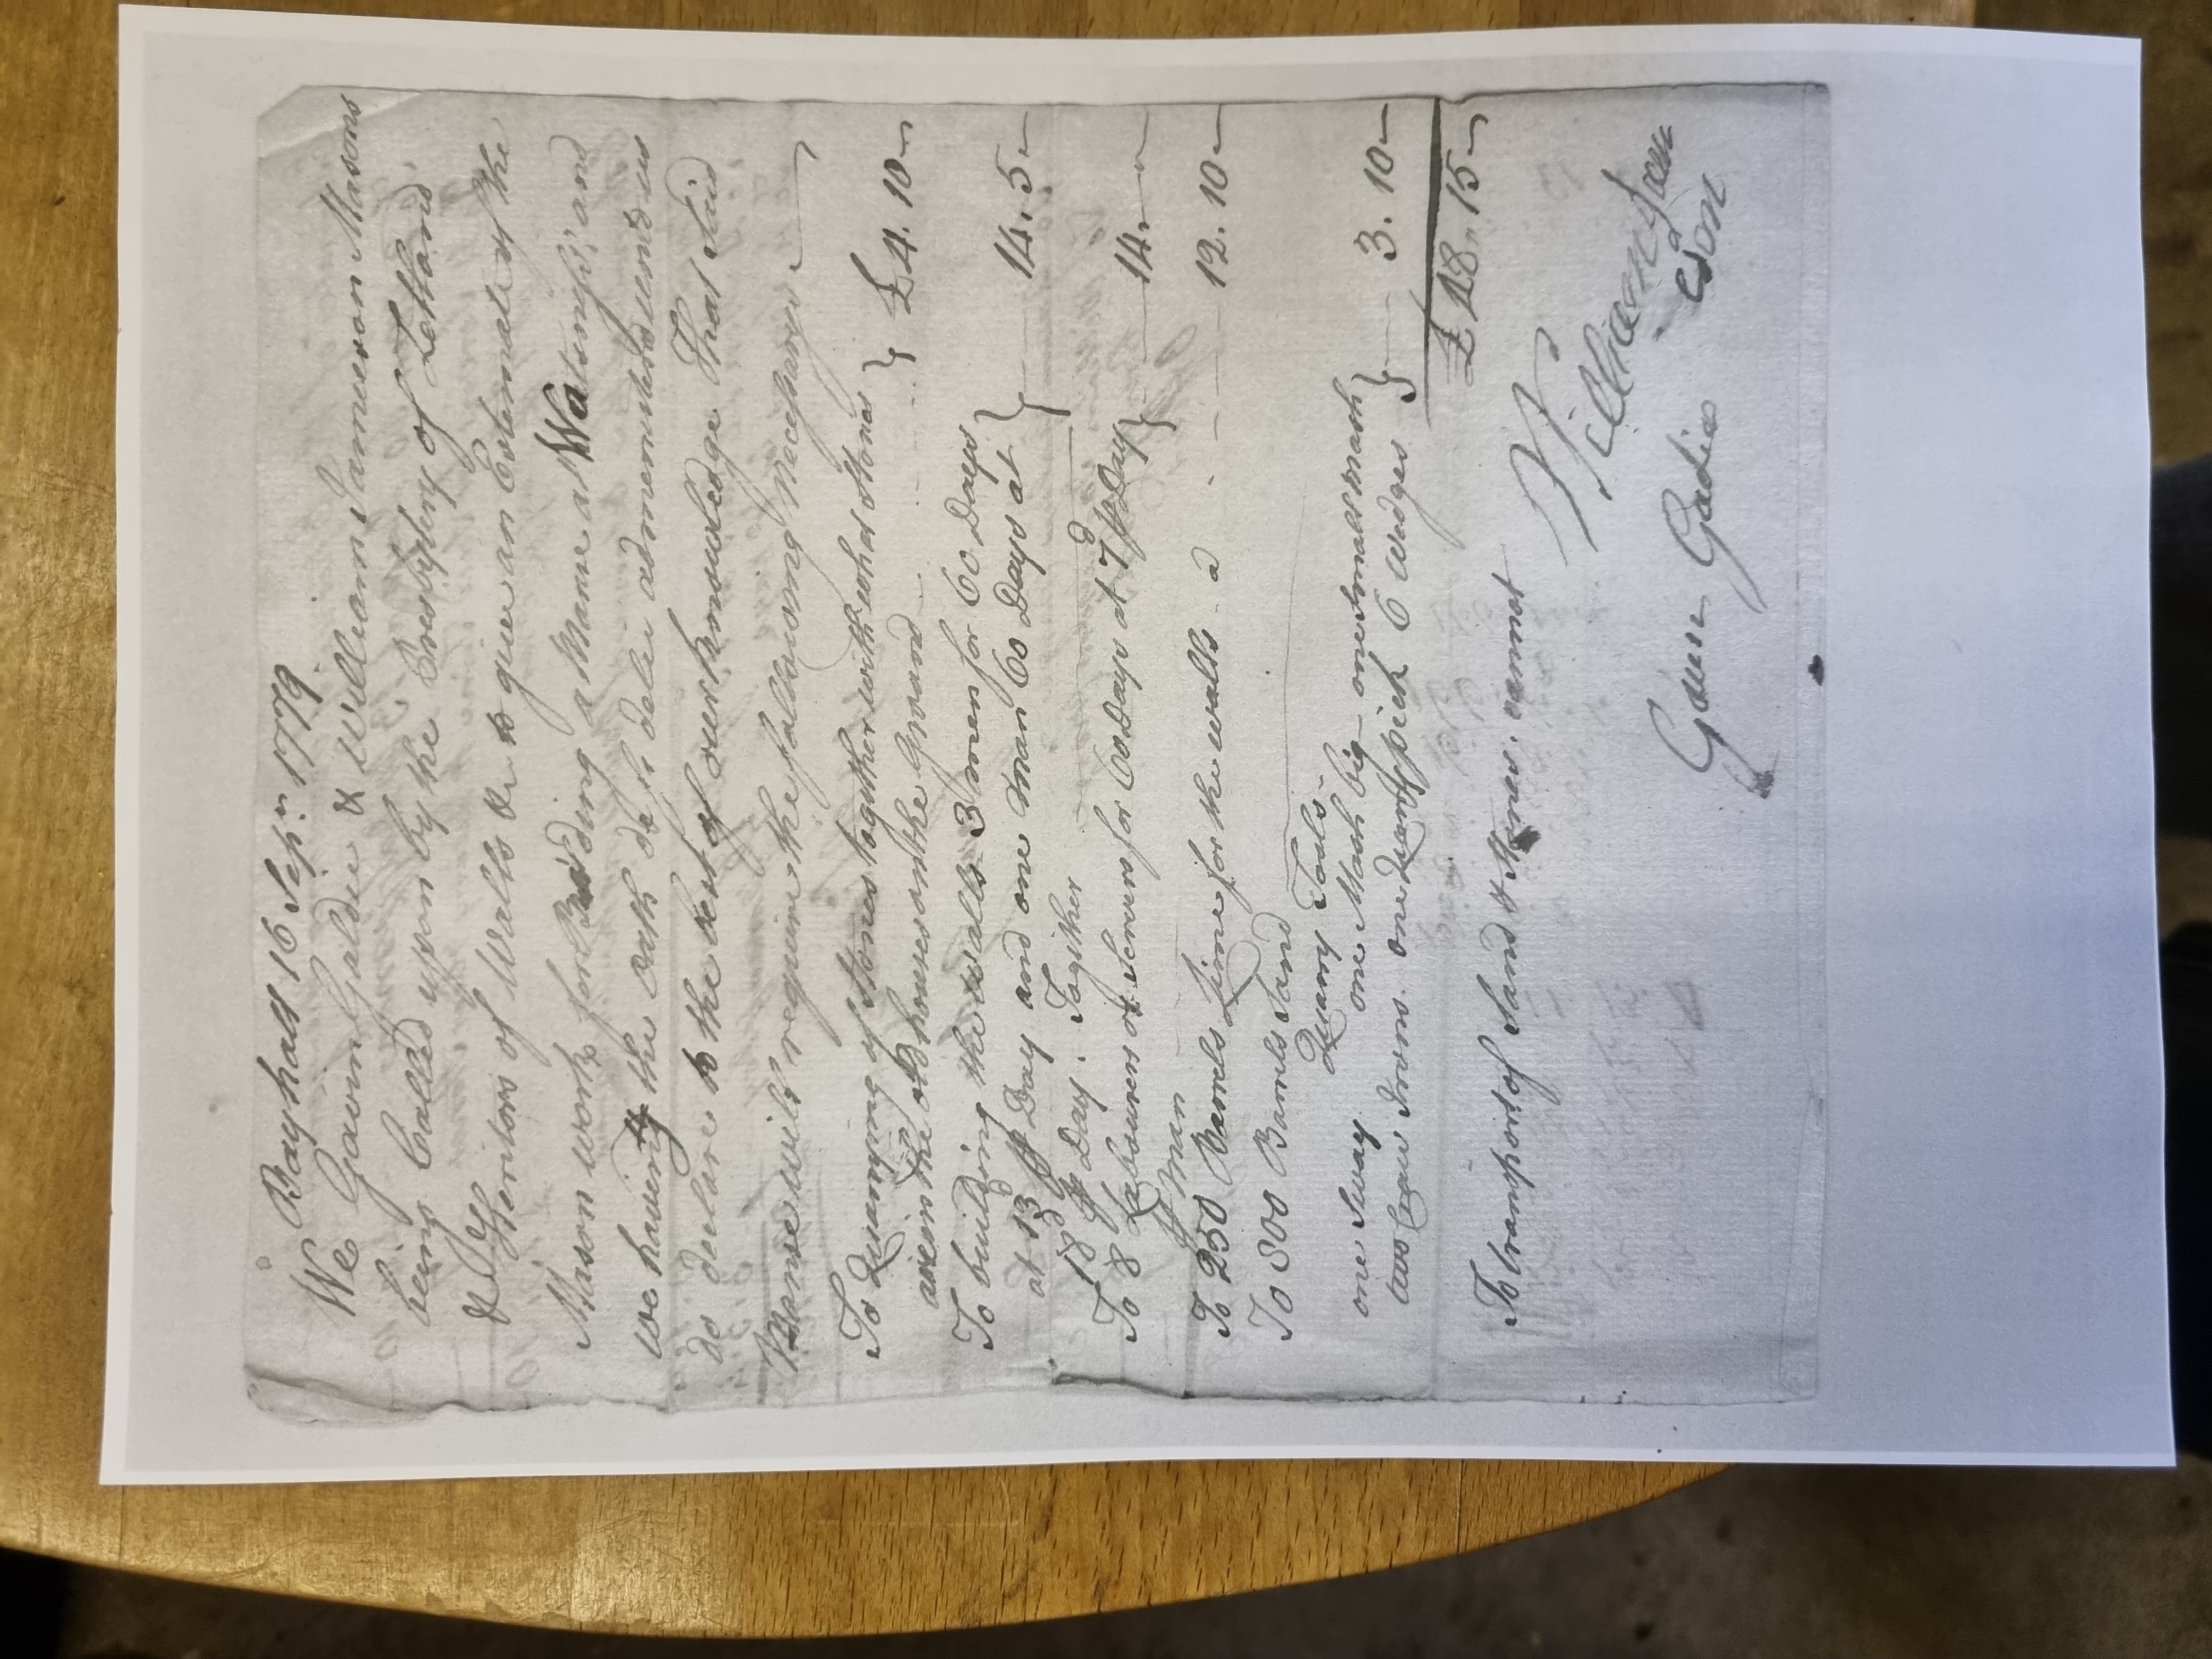 Bayhall 16 Sepr. 1779.
We Gavin Galdie & William Jameson Masons
being Called upon by the Presbytery of Zetland
& Heritors of Walls &c to give an Estemate of the
Mason work for Bulding a Manse at Watsness, and
we having the oath de fideli admenistred unto us
do declare to the best of our knowledge That said
Manse will require the following Necessarys
To Quarrying of Stones together with what stones } £4. 10 ~
are in the old houses on the Ground
To building the walls 3 men for 60 Days }
at 13d ⅌ Day and one Man 60 Days at } 14. 5 ~
18d ⅌ Day. Togither
To 8 Labourers or Servants for 60 Days at 7d ⅌ Day } 14. ~ ~
⅌ Man
To 250 Barrels Lime for the walls a - - 12. 10 ~
To 300 Barrels Sand
Quarry Tools
one Sway one Mash big one small mash }
two Craw Irons. one Quarry pick 6 wedges } 3. 10 ~
£48. 15 ~
To transport of Sand & Stones, cannot
William Jam
eson
Gavin Gadie